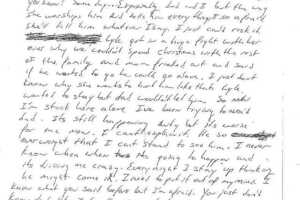 you know? Some days. Especially dad and I hate the way
She worships him and tells him everything I'm so afraid
she'll tell him whatever I say. I just can't reach
Lyle got in a huge fight with her
over why we couldn't spend christmas with the rest
of the family and mom freaked out and said
if he wanted to go he could go alone. I just don't
know why she wants to hurt him like that. Lyle
wanted to stay but dad wouldn't let him. So now
I'm stuck here alone I've been trying to avoid
dad. Its still happening Andy but its worse
for me now. I can't explain it. He so
overweight that I can't stand to see him. I never
know when its going to happen and
its driving me crazy. Every night I stay up thinking
he might come in. I need to put it out of my mind. I
know what you said before but I'm afraid. You just don't